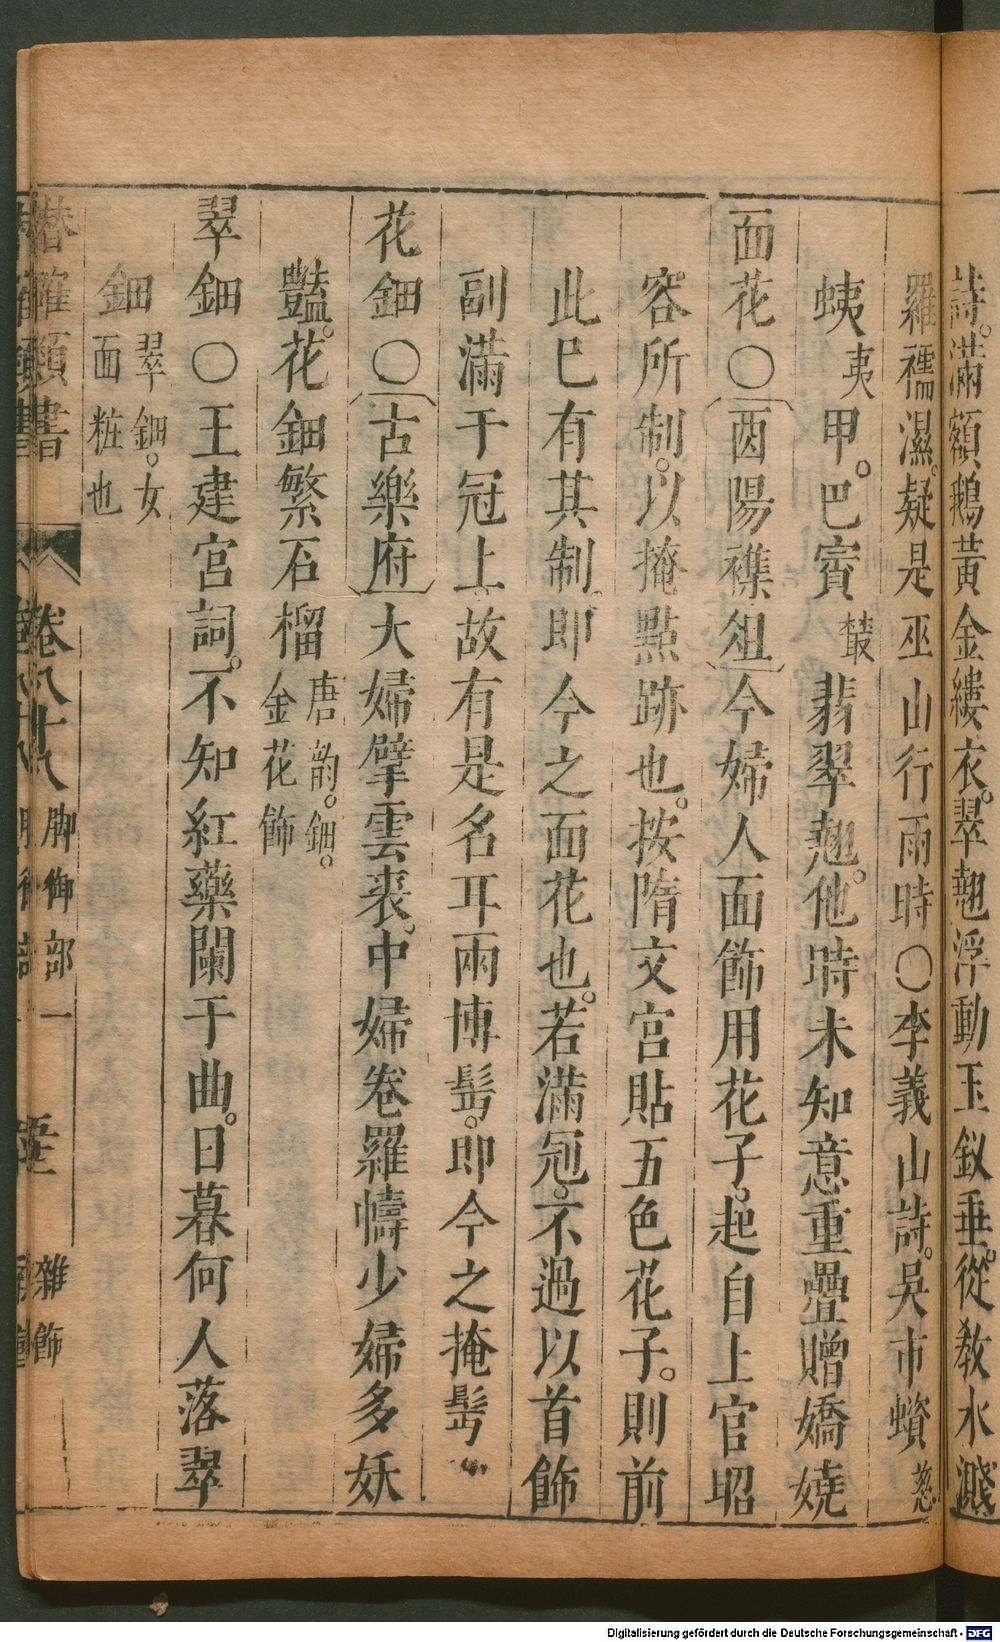 詩。滿額鵝黃金縷衣。翠翹浮動玉釵垂。從教水濺
羅襦濕。疑是巫山行雨時〇李義山詩。吳市蠀慈
蛦夷甲。巴賓叢翡翠翹。他時未知意重疊贈嬌嬈
面花〇酉陽襍俎今婦人面飾用花子。起自上官昭
容所制。以掩點跡也。按隋文宮貼五色花子。則前
此已有其制。即今之面花也。若滿冠。不過以首飾
副滿于冠上。故有是名耳兩博髩。即今之掩髩
花鈿〇古樂府大婦擘雲裘。中婦卷羅幬少婦多妖
豔。花鈿繁石榴唐韵。鈿。金花飾
翠鈿〇王建宮詞。不知紅藥闌干曲。日暮何人落翠
鈿翠鈿。女面粧也
潛確類書 卷八十八 服御部一 雜飾
Digitalisierung gefördert durch die Deutsche Forschungsgemeinschaft - DFG